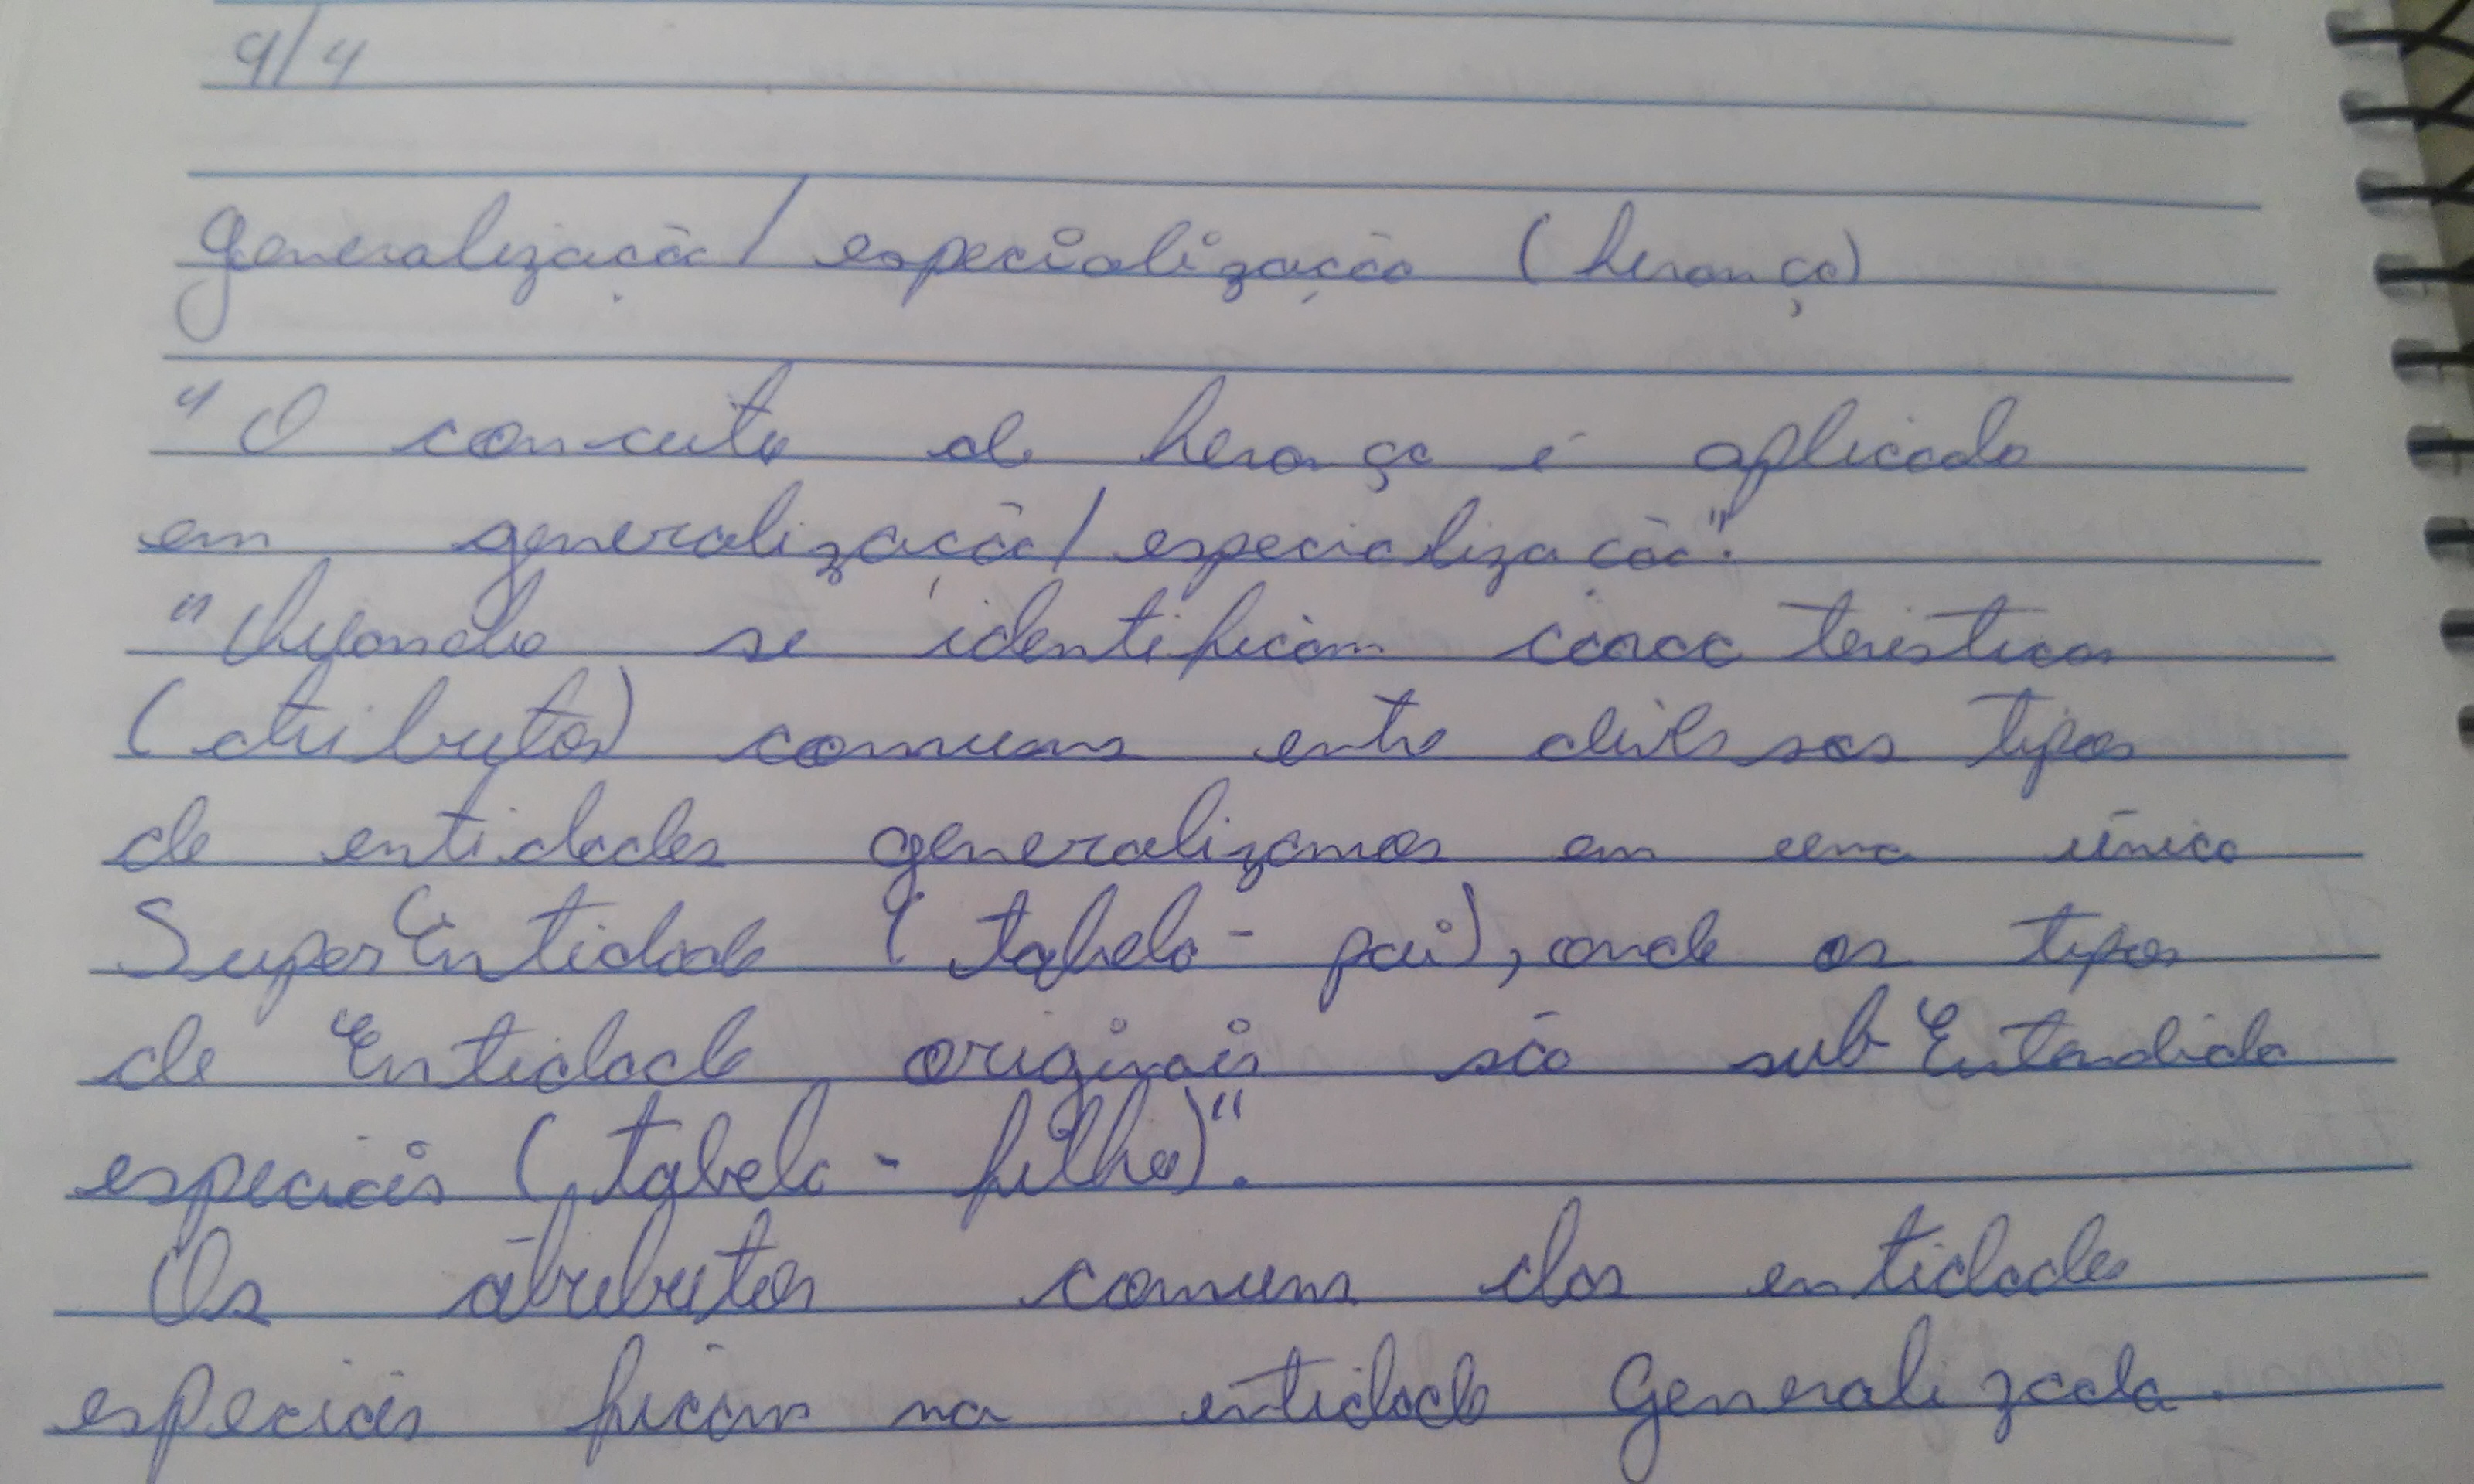 9/4
Generalização/especialização (herança)
"O conceito de herança é aplicado
em generalização/especialização."
"Quando se identificam características
(atributos) comuns entre diversos tipos
de entidades generalizamos em uma única
SuperEntidade (tabela-pai), onde os tipos
de Entidade originais são subEntendido
especiais (tabela-filha)".
Os atributos comuns das entidades
especiais ficam na entidade Generalizada.